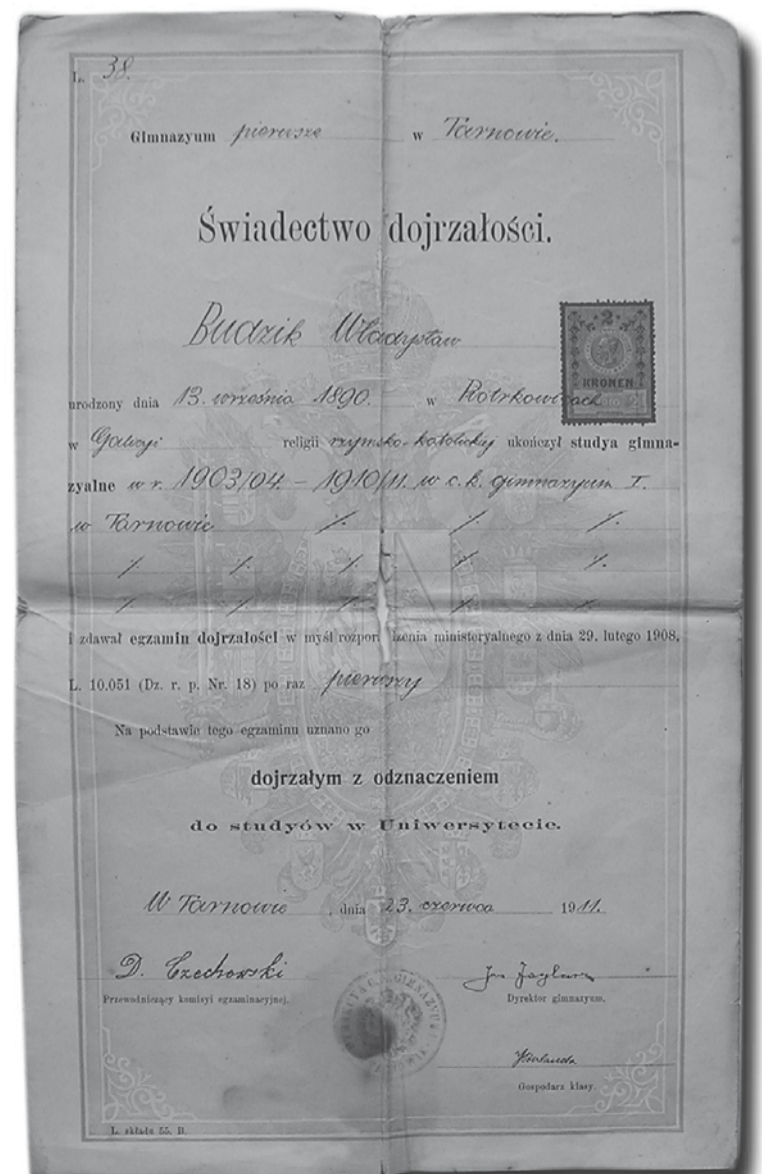 L. 38.
Gimnazyum pierwsze w Tarnowie.
Świadectwo dojrzałości.
Budzik Władysław
2
KRONEN
urodzony dnia 13. września 1890. w Piotrkowicach
w Galicyi religii rzymsko-katolickiej ukończył studya gimna-
zyalne w r. 1903/04. – 1910/11. w c. k. gimnazyum I.
w Tarnowie
i zdawał egzamin dojrzałości w myśl rozpor ządzenia ministeryalnego z dnia 29. lutego 1908,
L. 10.051 (Dz. r. p. Nr. 18) po raz pierwszy
Na podstawie tego egzaminu uznano go
dojrzałym z odznaczeniem
do studyów w Uniwersytecie.
W Tarnowie, dnia 23. czerwca 1911.
D. Czechowski
Przewodniczący komisyi egzaminacyjnej.
Dyrektor gimnazyum.
Gospodarz klasy.
L. składu 55. B.